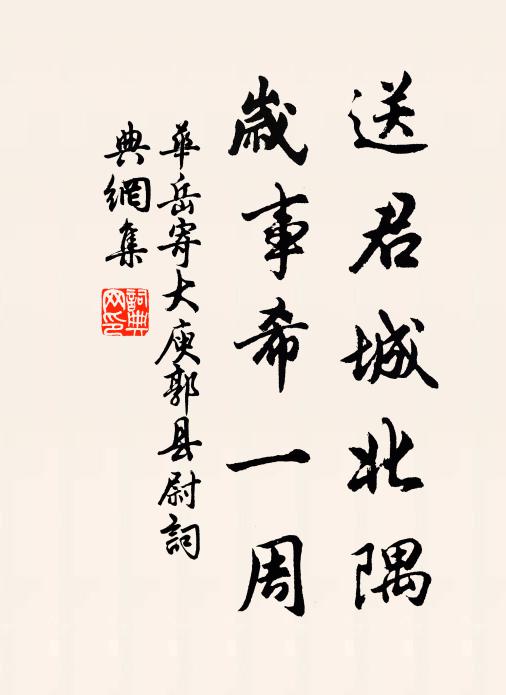 送君城北隅
歲事希一周
華岳寄大庾郭县尉詞
典網集
詞典网印